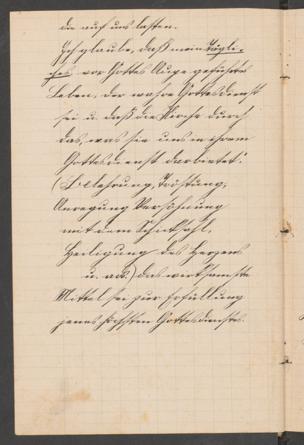 die auf uns lasten.
Ich glaube, daß mein tägli-
ches vor Gottes Auge geführtes
Leben, der wahre Gottesdienst
sei u. daß die Kirche durch
das, was sie uns in ihrem
Gottesdienst darbietet:
(Belehrung, Tröstung,
Anregung Versöhnung
mit dem Schicksal,
Heiligung des Herzens
u. a.) das wirksamste
Mittel sei zur Erfüllung
jenes höchsten Gottesdienstes.